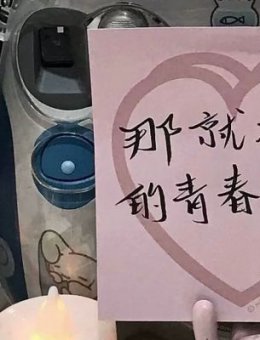 那就
的青春